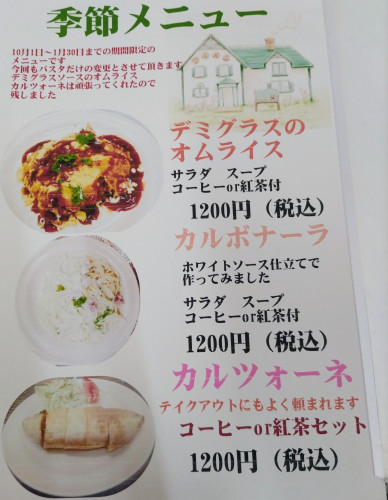 季節メニュー
10月1日~1月30日までの期間限定の
メニューです
今回もパスタだけの変更とさせて頂きます
デミグラスソースのオムライス
カルツォーネは頑張ってくれたので
残しました
デミグラスの
オムライス
サラダ スープ
コーヒーor紅茶付
1200円（税込）
カルボナーラ
ホワイトソース仕立てで
作ってみました
サラダ スープ
コーヒーor紅茶付
1200円（税込）
カルツォーネ
テイクアウトにもよく頼まれます
コーヒーor紅茶セット
1200円（税込）